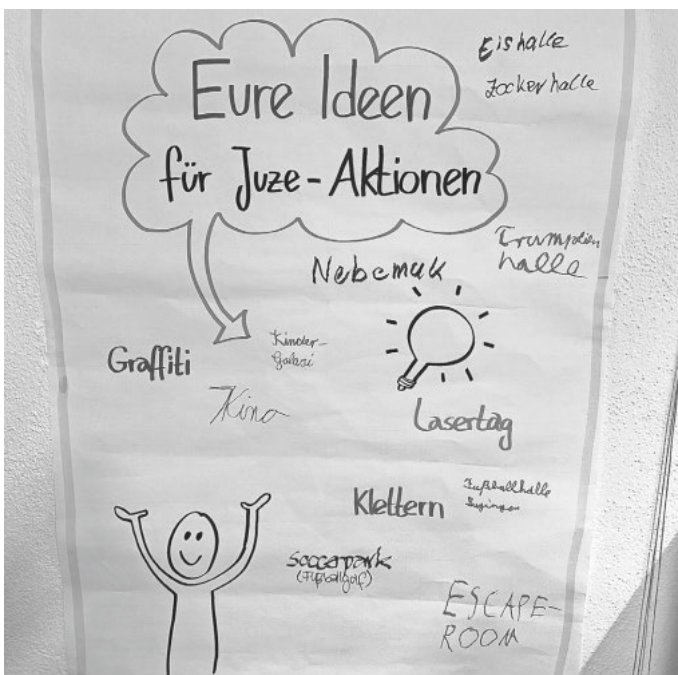 Eure Ideen
für Juze-Aktionen
Eishalle
Zockerhalle
Trampolin
halle
Nebemuk
Graffiti
Kinder-
Galaxi
Kino
Lasertag
Klettern
Fußballhalle
Soccapark
(Fußballgolf)
ESCAPE-
ROOM